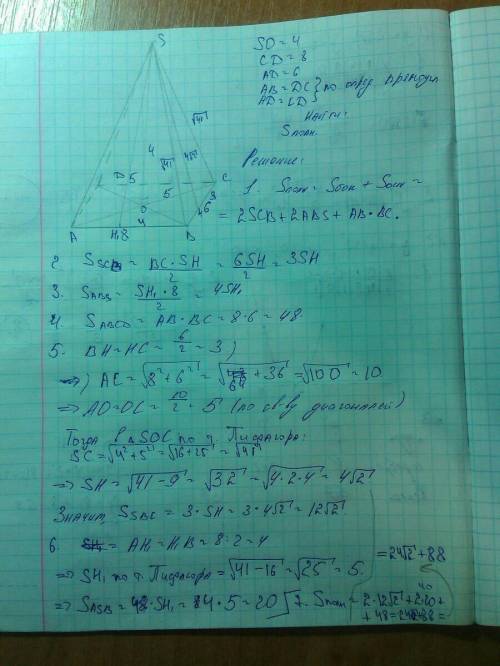 S
SO = 4
CD = 8
AD = 6
AB = DC } по опред. 
AD = CD }
Найти:
Sполн.
Решение:
√41
4 √41 4√2
D 5 C
5 3
O 6
4
A H₁8 B
1. Sполн = Sбок + Sосн =
= 2SCB + 2ABS + AB·BC.
2. S SCB = BC·SH/2 = 6SH/2 = 3SH
3. S ABS = SH₁·8/2 = 4SH₁
4. S ABCD = AB·BC = 8·6 = 48.
5. BH = HC = 6/2 = 3)
⇒) AC = √8²+6² = √64 + 36 = √100 = 10
⇒ AO = OC = 10/2 = 5 (по св-ву диагоналей)
Тогда в ΔSOC по т. Пифагора:
SC = √4²+5² = √16+25 = √41
⇒ SH = √41-9 = √32 = √4·2·4 = 4√2
Значит, S SBC = 3·SH = 3·4√2 = 12√2
6. = AH₁ = H₁B = 8:2 = 4
= 24√2 + 88
⇒ SH₁ по т. Пифагора = √41-16 = √25 = 5.
⇒ S ASB = 4·SH₁ = 4·5 = 20 7. Sполн = 2·12√2 + 2·20 +
40
+ 48 = 24√2 + 88 =